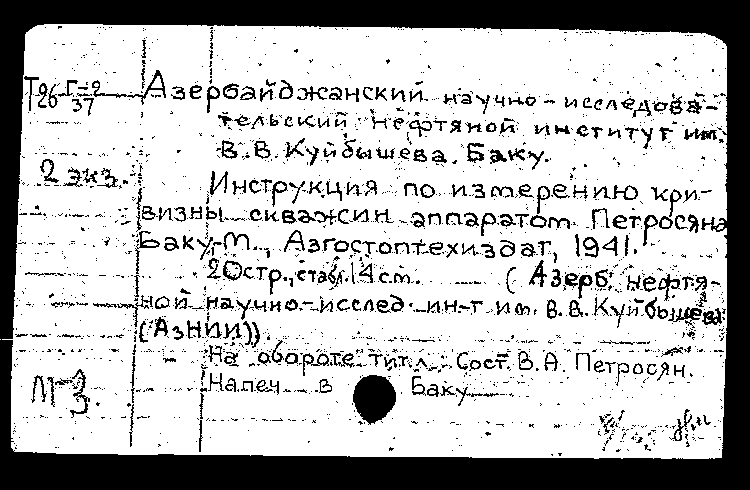 Т26 Г-2 Азербайджанский научно-исследова-
37
тельский нефтяной институт им.
В.В. Куйбышева. Баку.
2 экз.
Инструкция по измерению кри-
визны скважин аппаратом Петросяна
Баку-М., Азгостоптехиздат, 1941.
20стр., 14 см. (Азерб. нефтя-
ной научно-исслед. ин-т им. В.В. Куйбышева
(АзНИИ)).
На обороте тит. л.: Сост. В.А. Петросян.
Напеч. в Баку
М-3.